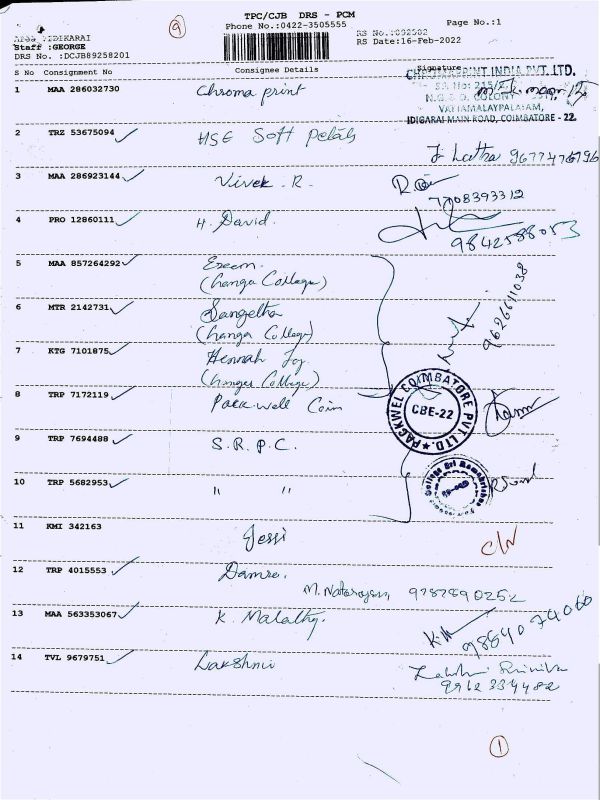 TPC/CJB DRS - PCM
Phone No.:0422-3505555
Page No.:1
9
IDIKARAI
Staff :GEORGE
DRS No. :DCJB89258201
RS Date:16-Feb-2022
S No Consignment No Consignee Details Signature
1 MAA 286032730 Chroma print
PRINT INDIA PVT. LTD.
COLONY
VATTAMALAYPALAYAM,
IDIGARAI MAIN ROAD, COIMBATORE - 22.
2 TRZ 53675094 HSE Soft Petals
J. Latha 9677476796
3 MAA 286923144 Vivek. R.
7708393312
4 PRO 12860111 H. David.
9842588053
5 MAA 857264292
(Ganga College)
6 MTR 2142731 Sangetha
(Ganga College)
9626611038
7 KTG 7101875 Hennah Joy
(Ganga College)
8 TRP 7172119 Pack well Coim
PACKWEL COIMBATORE PVT. LTD.
CBE-22
9 TRP 7694488 S.R.P.C.
10 TRP 5682953 " "
11 KMI 342163 Jessi
12 TRP 4015553
M. Natarajan, 9787890252
13 MAA 563353067 K. Malathy.
K.M 9884074060
14 TVL 9679751 Lakshmi
9962334482
1